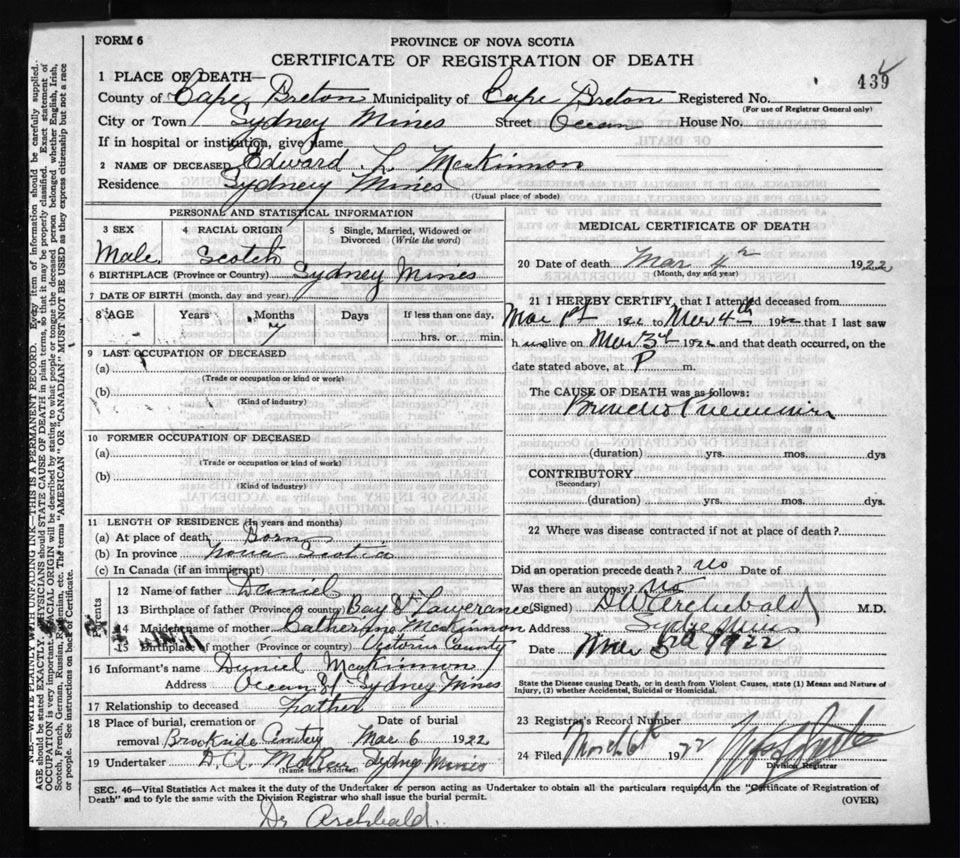 FORM 6
PROVINCE OF NOVA SCOTIA
CERTIFICATE OF REGISTRATION OF DEATH
439
1 PLACE OF DEATH—
County of Cape Breton Municipality of Cape Breton Registered No.
(For use of Registrar General only)
City or Town Sydney Mines Street Ocean House No.
If in hospital or institution, give name
2 NAME OF DECEASED Edward L. MacKinnon
Residence Sydney Mines
(Usual place of abode)
PERSONAL AND STATISTICAL INFORMATION
3 SEX 4 RACIAL ORIGIN 5 Single, Married, Widowed or Divorced (Write the word)
Male Scotch
6 BIRTHPLACE (Province or Country) Sydney Mines
7 DATE OF BIRTH (month, day and year)
8 AGE Years Months Days If less than one day,
7 hrs. or min.
9 LAST OCCUPATION OF DECEASED
(a)
(Trade or occupation or kind or work)
(b)
(Kind of industry)
10 FORMER OCCUPATION OF DECEASED
(a)
(Trade or occupation or kind of work)
(b)
(Kind of industry)
11 LENGTH OF RESIDENCE (In years and months)
(a) At place of death Born
(b) In province Nova Scotia
(c) In Canada (if an immigrant)
Parents
12 Name of father Daniel
13 Birthplace of father (Province or country) Bay St Lawerance
14 Maiden name of mother Catherine MacKinnon
15 Birthplace of mother (Province or country) Victoria County
16 Informant's name Daniel MacKinnon
Address Ocean St Sydney Mines
17 Relationship to deceased Father
18 Place of burial, cremation or removal Brookside Cemetery Date of burial Mar 6 1922
19 Undertaker Sydney Mines
(Name and Address)
MEDICAL CERTIFICATE OF DEATH
20 Date of death Mar 4 1922
(Month, day and year)
21 I HEREBY CERTIFY, that I attended deceased from
Mar 1st 1922 to Mar 4th 1922 that I last saw
h im alive on Mar 3rd 1922 and that death occurred, on the
date stated above, at P m.
The CAUSE OF DEATH was as follows:
Broncho Pneumonia
(duration) yrs. mos. dys
CONTRIBUTORY
(Secondary)
(duration) yrs. mos. dys.
22 Where was disease contracted if not at place of death?
Did an operation precede death? no Date of
Was there an autopsy? no
(Signed) DW Archibald M.D.
Address Sydney Mines
Date Mar 1922
State the Disease causing Death, or in death from Violent Causes, state (1) Means and Nature of Injury, (2) whether Accidental, Suicidal or Homicidal.
23 Registrar's Record Number
24 Filed March 6th 1922
Division Registrar
SEC. 46—Vital Statistics Act makes it the duty of the Undertaker or person acting as Undertaker to obtain all the particulars required in the "Certificate of Registration of
Death" and to fyle the same with the Division Registrar who shall issue the burial permit.
(OVER)
Dr Archbald.
N.B.—WRITE PLAINLY WITH UNFADING INK—THIS IS A PERMANENT RECORD. Every item of information should be carefully supplied.
AGE should be stated EXACTLY. PHYSICIANS should STATE CAUSE OF DEATH in plain terms, so that it may be properly classified. Exact statement of
OCCUPATION is very important. RACIAL ORIGIN will be described by stating to what people or tongue the deceased person belonged whether English, Irish,
Scotch, French, German, Russian, Ruthenian, etc. The terms "AMERICAN" OR "CANADIAN" MUST NOT BE USED as they express citizenship but not a race
or people. See instructions on back of Certificate.